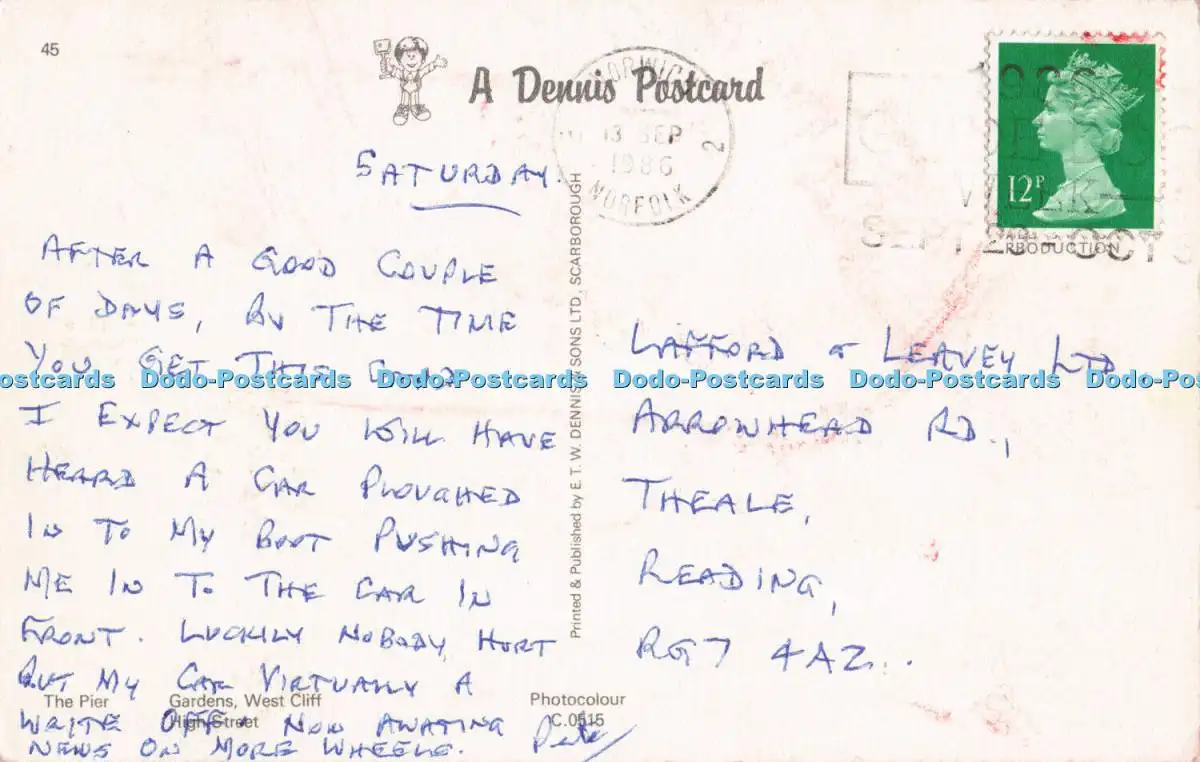 45
A Dennis Postcard
NORWICH
13 SEP
1986
2
NORFOLK
12P
SATURDAY.
AFTER A GOOD COUPLE
OF DAYS, BY THE TIME
YOU GET THIS CARD
I EXPECT YOU WILL HAVE
HEARD A CAR PLOUGHED
IN TO MY BOOT PUSHING
ME IN TO THE CAR IN
FRONT. LUCKILY NOBODY HURT
BUT MY CAR VIRTUALLY A
WRITE OFF. NOW AWATING
NEWS ON MORE WHEELS. Pete
Printed & Published by E. T. W. DENNIS SONS LTD., SCARBOROUGH
LAFFORD & LEAVEY LTD
ARROWHEAD RD.,
THEALE,
READING,
RG7 4AZ..
The Pier Gardens, West Cliff Photocolour
High Street C.0515
Dodo-Postcards Dodo-Postcards Dodo-Postcards Dodo-Postcards